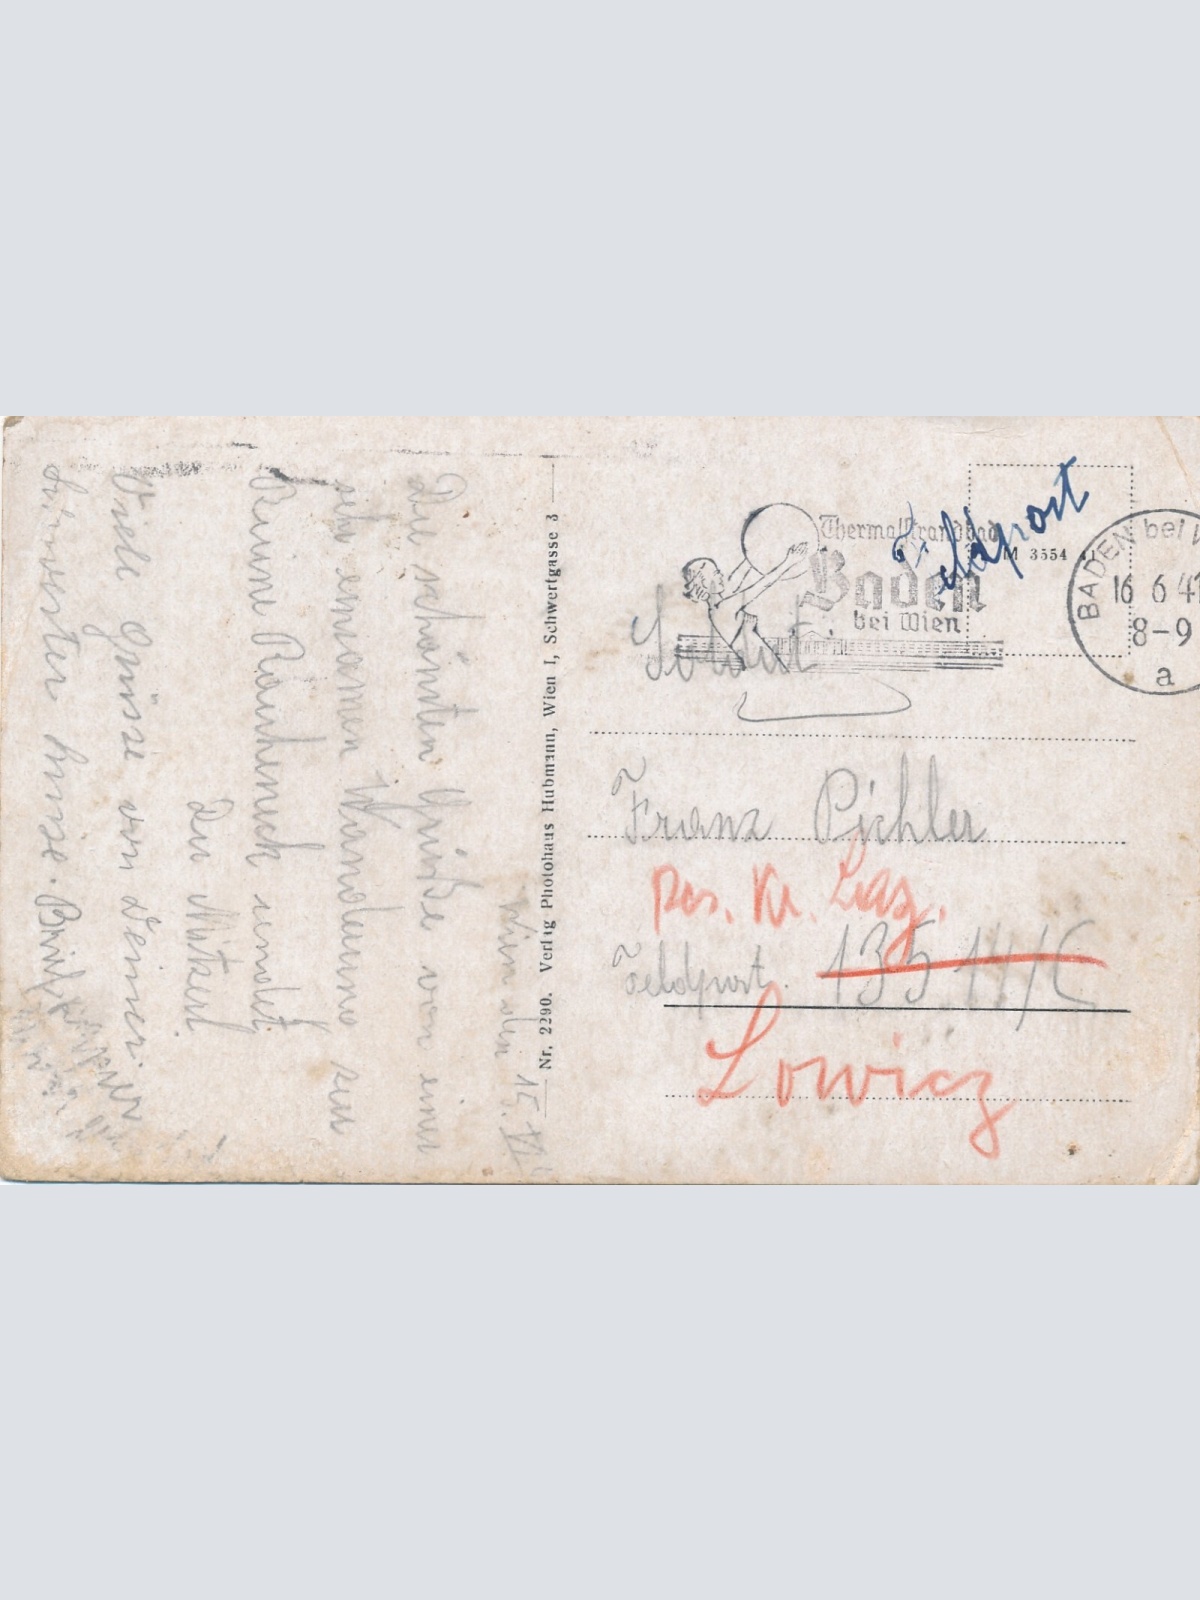 Wien den 15. VI.
Die schönsten Grüße von einer
sehr einsamen Wanderung zur
Ruine Rauheneck sendet
Dir Mitzerl
Viele Grüsse von Deiner
Schwester Luise.
Nr. 2290. Verlag Photohaus Hubmann, Wien I, Schwertgasse 3
Feldpost
Thermalstrandbad
Baden
bei Wien
M 3554 41
BADEN bei W
16 6 41
8-9
a
Soldat
Franz Pichler
Res. Kr. Laz.
Feldpost. 13514/C
Lowicz